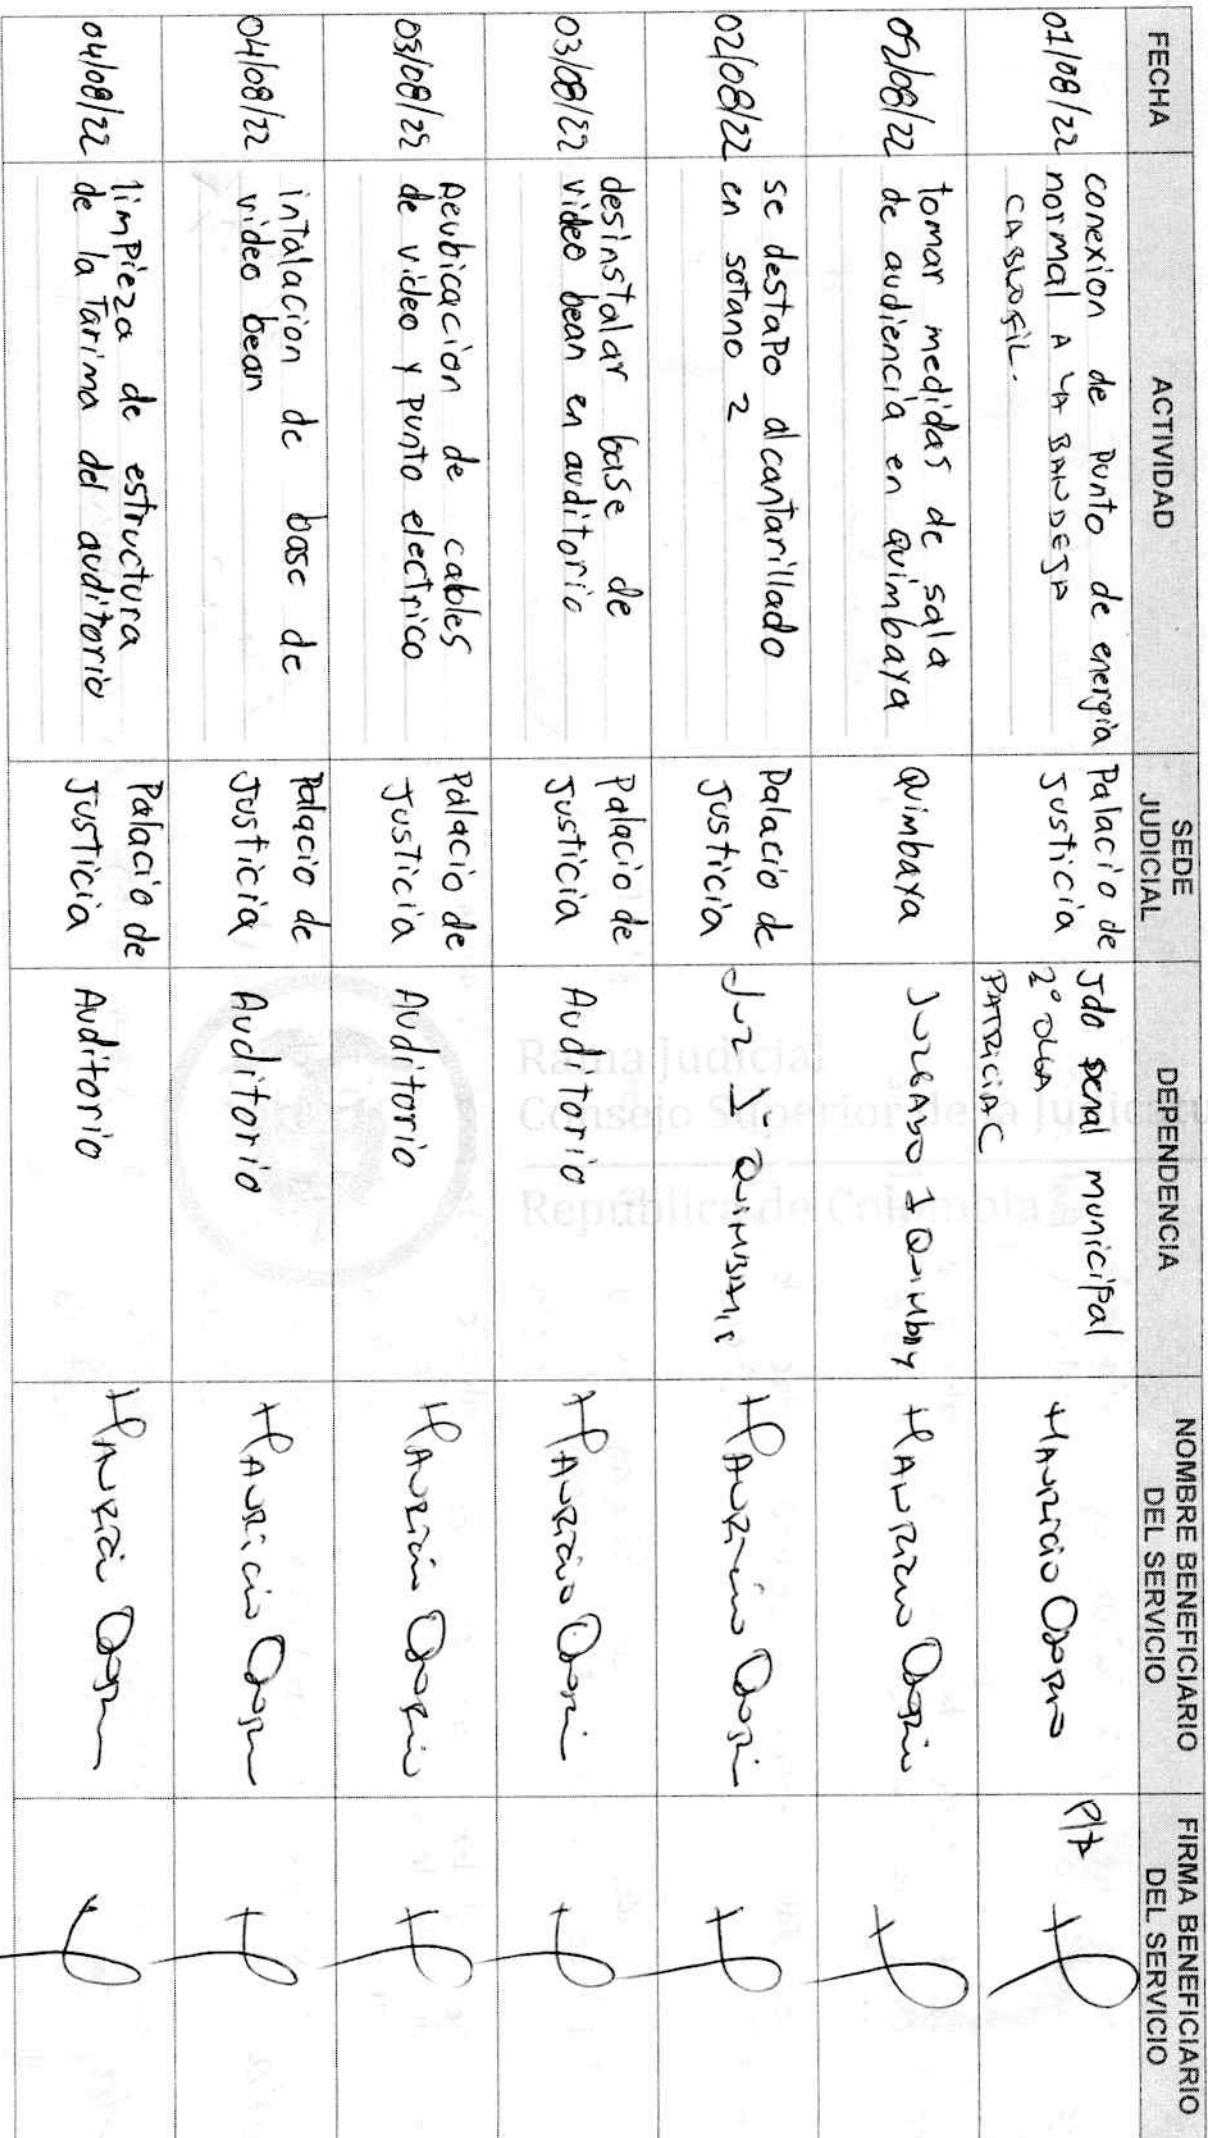 FECHA
ACTIVIDAD
SEDE
JUDICIAL
DEPENDENCIA
NOMBRE BENEFICIARIO
DEL SERVICIO
FIRMA BENEFICIARIO
DEL SERVICIO
01/08/22
conexion de punto de energia
normal A LA BANDEJA
CABLOFIL.
Palacio de
Justicia
Jdo penal municipal
2° OLGA
PATRICIA C
MAURICIO Osorio
P/A
02/08/22
tomar medidas de sala
de audiencia en quimbaya
Quimbaya
JUZGADO 1 Quimbay
MAURICIO Osorio
02/08/22
se destapo alcantarillado
en sotano 2
Palacio de
Justicia
Juz 1-
MAURICIO Osorio
03/08/22
desinstalar base de
video bean en auditorio
Palacio de
Justicia
Auditorio
MAURICIO Osorio
03/08/22
Reubicación de cables
de video y punto electrico
Palacio de
Justicia
Auditorio
MAURICIO Osorio
04/08/22
intalacion de base de
video bean
Palacio de
Justicia
Auditorio
MAURICIO Osorio
04/08/22
limpieza de estructura
de la Tarima del auditorio
Palacio de
Justicia
Auditorio
MAURICIO Osorio
Rama Judicial
Consejo Superior de la Judicatu
República de Colombia